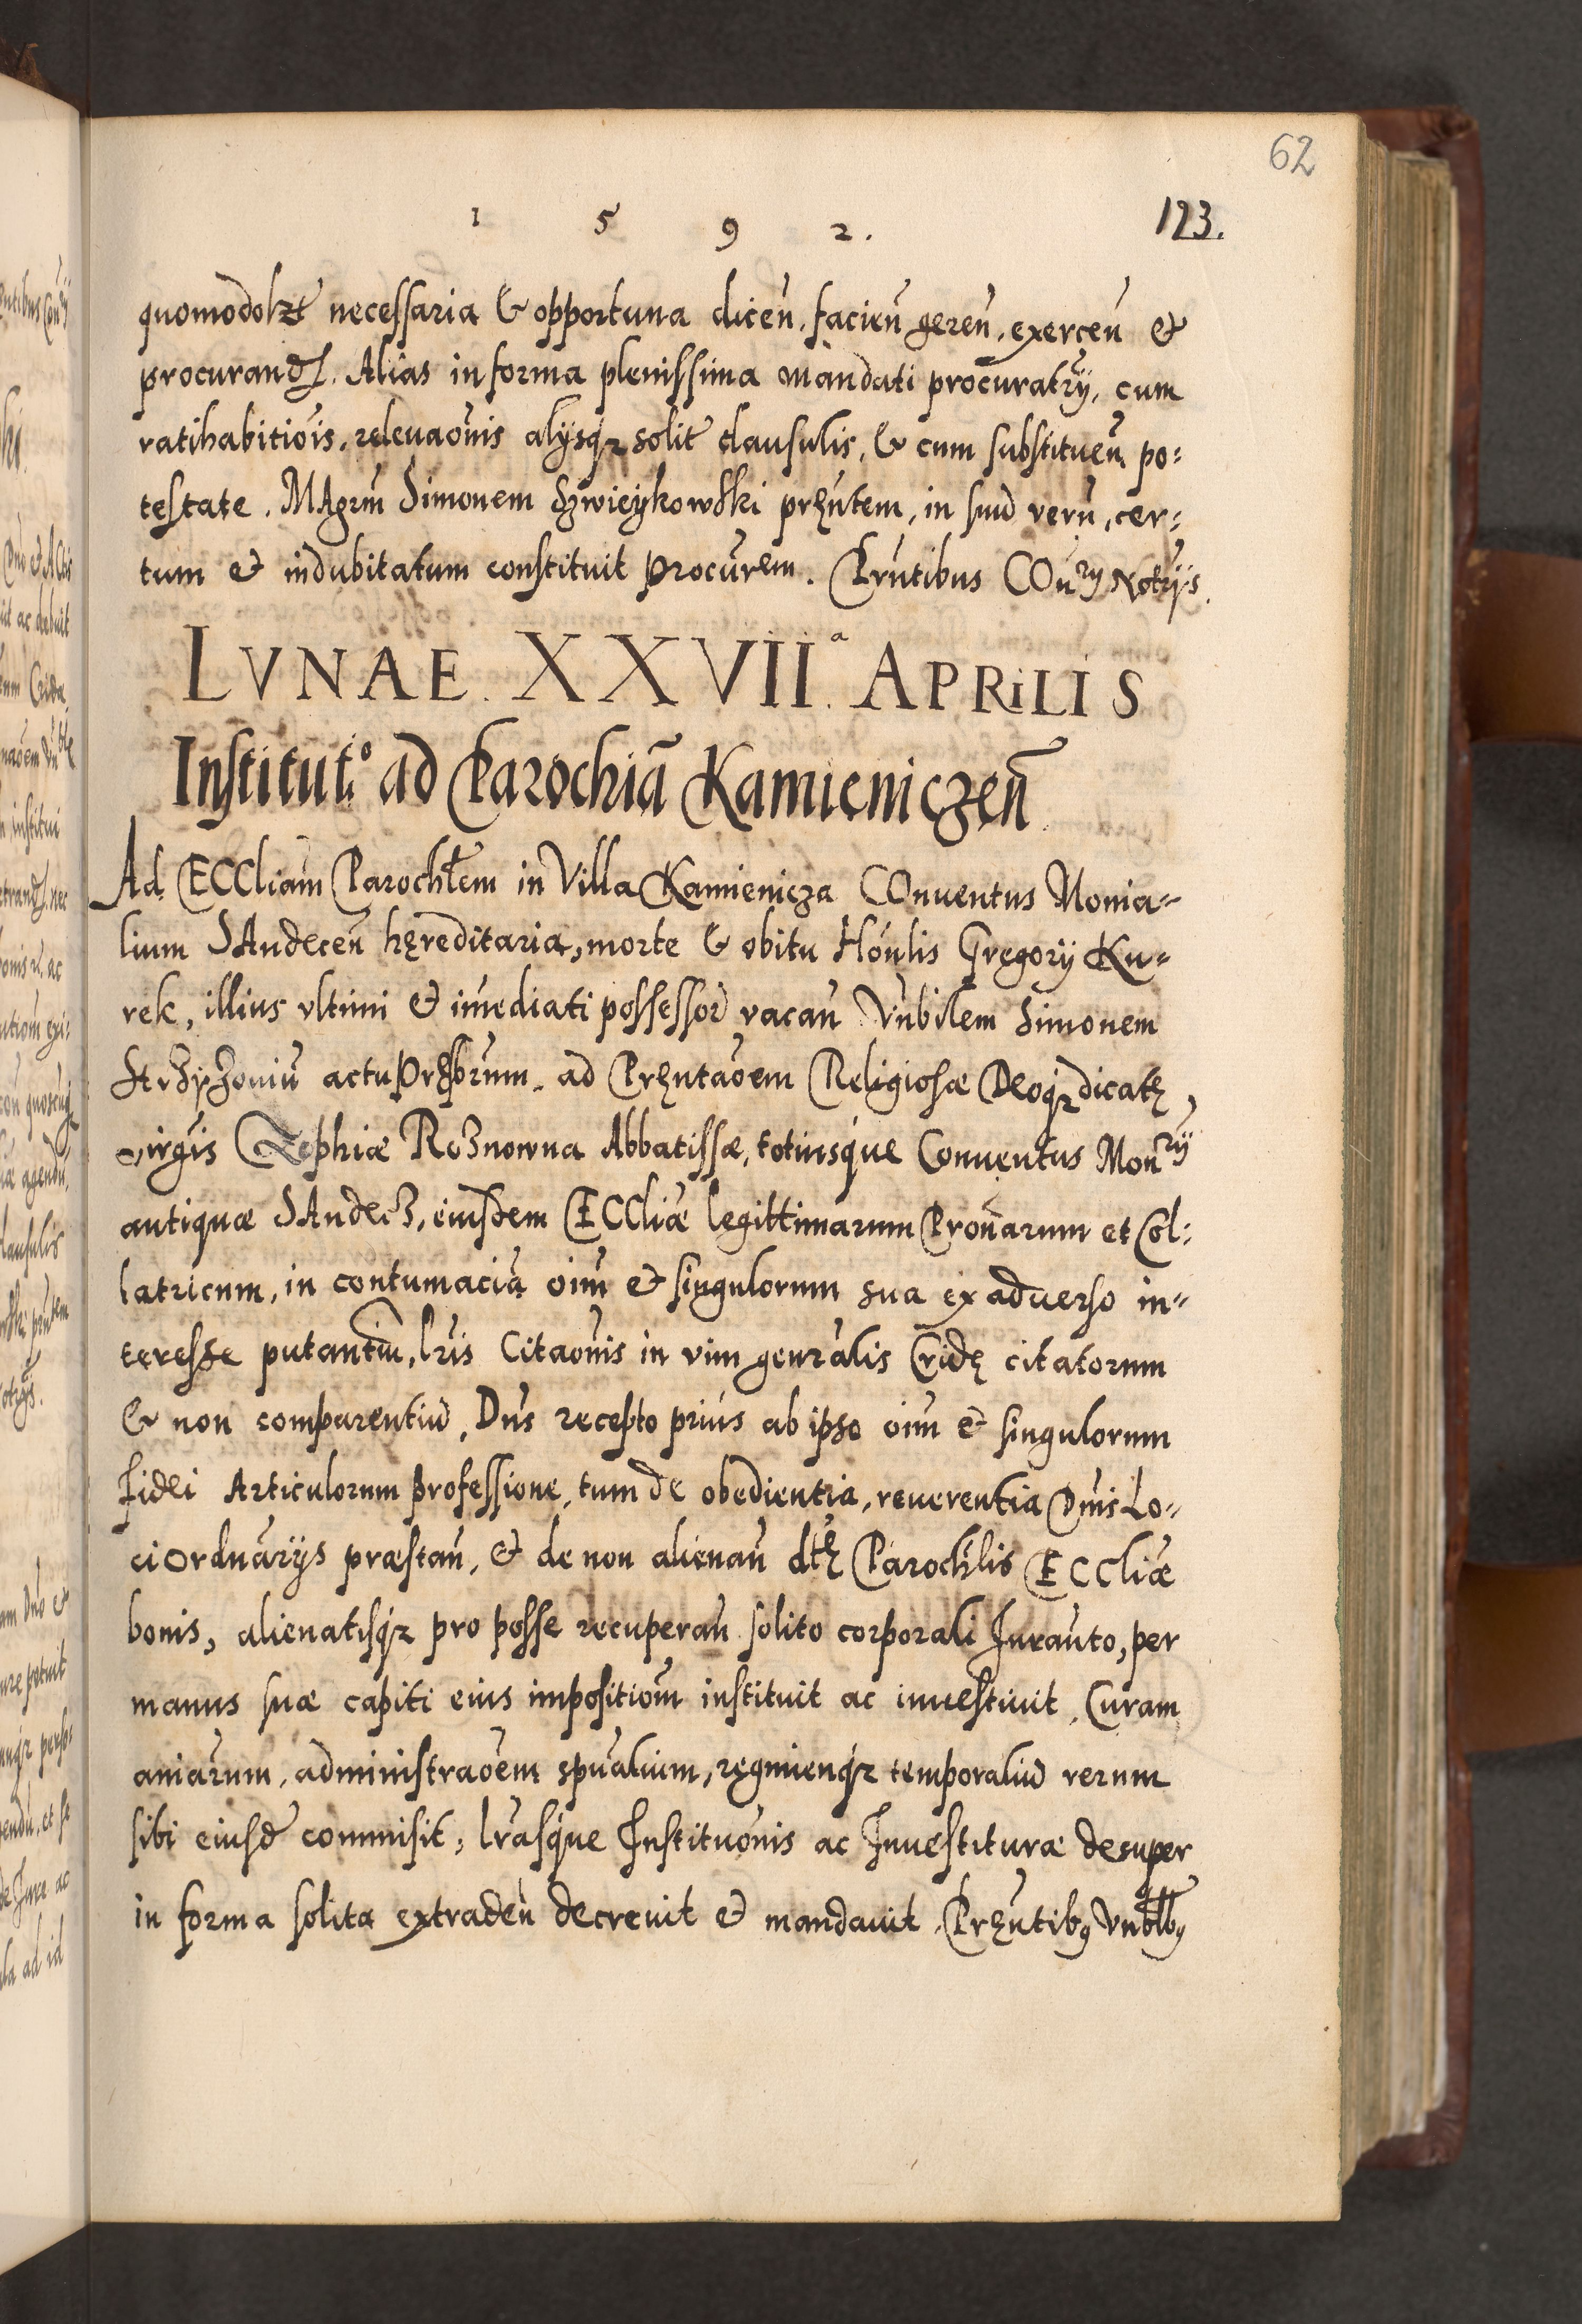 62
1 5 9 2. 123.
quomodolzt necessaria & opportuna dicen̄, facien̄ geren̄, exercen̄ et
procurand. Alias in forma plenissima mandati procuratry, cum
ratihabitiōis, releuaōnis alÿsqꝫ solit clausulis, & cum substituen̄ po:
testate. MAgrm̄ Simonem Szwieykowski pręn̄tem, in suū verū, cer:
tum et indubitatum constituit procūrem. Prn̄tibus COn̄ry Notrÿs.
LVNAE. XXVIIª. APRiLIS
Institut:º ad Parochiā Kamieniczen̄
Ad ECCliam̄ Parochłem in Villa Kamienicza COnuentus Monia-
lium SAndecen̄ hęreditaria, morte & obitu Hōnlis Gregorÿ Ku-
rek, illius vltimi et im̄ediati possessor vacan̄ Vn̄bilem Simonem
actu prēsbrūm, ad Pręntaōem Religiosæ Deoqꝫ dicatę,
virgis Zophiæ Roznowna Abbatissæ, totiusque Conuentus Monrÿ
antiquæ SAndecz, eiusdem ECCliæ legittimarum Pronārum et Col:
latricum, in contumaciā oim̄ et singulorum sua ex aduerso in-
teresse putantiū, lrīs Citaōnis in vim genrālis Cridę citatorum
& non comparentiū, Dn̄s recepto prius ab ipso oim̄ et singulorum
fidei Articulorum professione, tum de obedientia, reuerentia Dn̄is Lo-
ci Ordnārÿs præstan̄, et de non alienan̄ dtę Parochlis ECCliæ
bonis, alienatisqꝫ pro posse recuperan̄ solito corporali Juran̄to, per
manus suæ capiti eius impositiom̄ instituit ac inuestiuit, Curam
aniārum, administraōem spūalium, regmienqꝫ temporaliū rerum
sibi eiusd commisit, lrāsque Instituōnis ac Inuestituræ desuper
in forma solita extraden̄ decreuit et mandauit. Pręn̄tibꝰ Vnblbꝰ